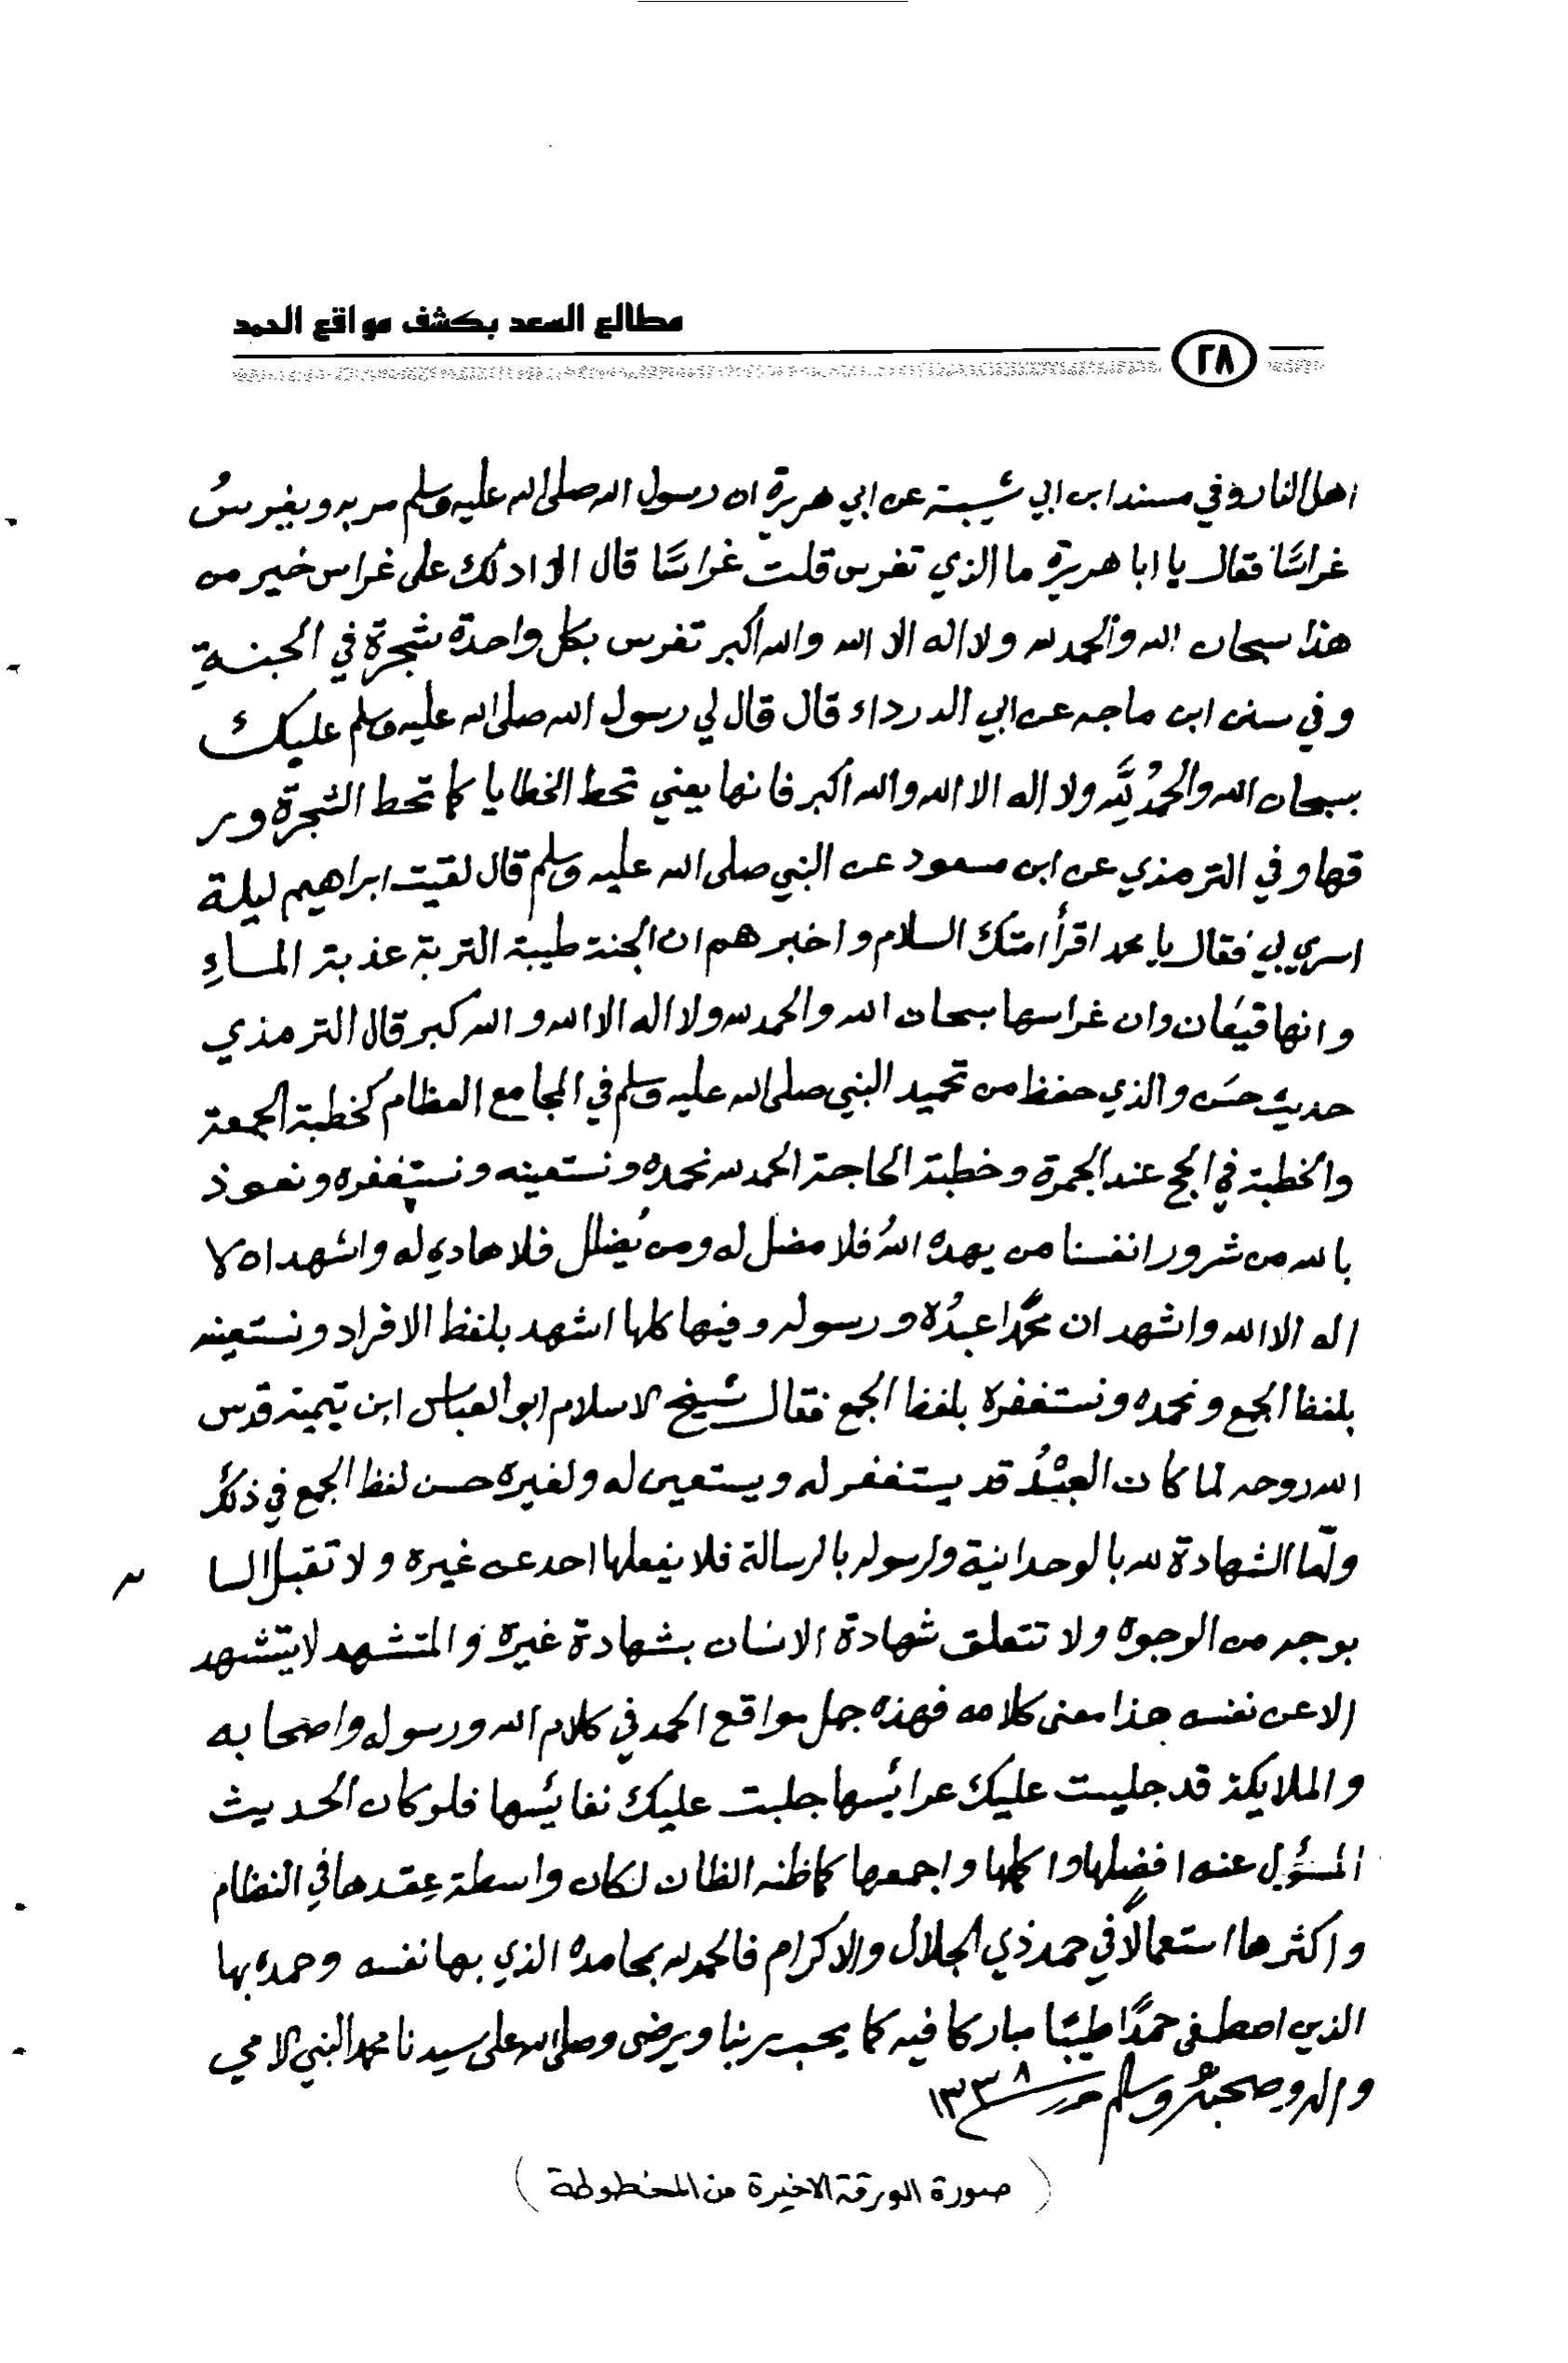 مطالع السعد بكشف مواقع الحمد
٢٨
اهل النار وفي مسند ابن ابي شيبة عن ابي هريرة ان رسول الله صلى الله عليه وسلم مر به ويغرسُ
غراسًا فقال يا ابا هريرة ما الذي تغرس قلت غراسًا قال الا ادلك على غراس خير من
هذا سبحان الله والحمد لله ولا اله الا الله والله اكبر تغرس بكل واحدة شجرة في الجنةِ
وفي سنن ابن ماجه عن ابي الدرداء قال قال لي رسول الله صلى الله عليه وسلم عليك
بسبحان الله والحمدُ لله ولا اله الا الله والله اكبر فانها يعني تحط الخطايا كما تحط الشجرة ور
قها وفي الترمذي عن ابن مسعود عن النبي صلى الله عليه وسلم قال لقيت ابراهيم ليلة
اسري بي فقال يا محمد اقرأ امتك السلام واخبرهم ان الجنة طيبة التربة عذبة الماءِ
وانها قيعَان وان غراسها سبحان الله والحمد لله ولا اله الا الله والله كبر قال الترمذي
حديث حسَن والذي حفظ من تحميد النبي صلى الله عليه وسلم في المجامع العظام كخطبة الجمعة
والخطبة في الحج عند الجمرة وخطبة الحاجة الحمد لله نحمده ونستعينه ونستغفره ونعوذ
بالله من شرور انفسنا من يهده اللهُ فلا مضل له ومن يُضلل فلا هادي له واشهد ان لا
اله الا الله واشهد ان محمدًا عبدُه ورسوله وفيها كلها اشهد بلفظ الافراد ونستعينه
بلفظ الجمع ونحمده ونستغفره بلفظ الجمع فقال شيخ الاسلام ابو العباس ابن تيمية قدس
الله روحه لما كان العبْدُ قد يستغفر له ويستعين له ولغيره حسن لفظ الجمع في ذلك
وأمّا الشهادة لله بالوحدانية ولرسوله بالرسالة فلا يفعلها احد عن غيره ولا تقبل
بوجه من الوجوه ولا تتعلق شهادة الانسان بشهادة غيره والمتشهد لا يتشهد
الا عن نفسه هذا معنى كلامه فهذه جمل مواقع الحمد في كلام الله ورسوله واصحابه
والملايكة قد جليت عليك عرائسها جلبت عليك نفائسها فلو كان الحديث
المسؤل عنه افضلها واكملها واجمعها كما ظنه الظان لكان واسطة عِقدها في النظام
واكثرها استعمالًا في حمد ذي الجلال والاكرام فالحمد لله بمحامده الذي بها نفسه وحمده بها
الذين اصطفى حمدًا طيبًا مباركا فيه كما يحب ربنا ويرضى وصلى الله على سيدنا محمد النبي الامي
واله وصحبه وسلم ١٣٣٨
(صورة الورقة الاخيرة من المخطوطة)